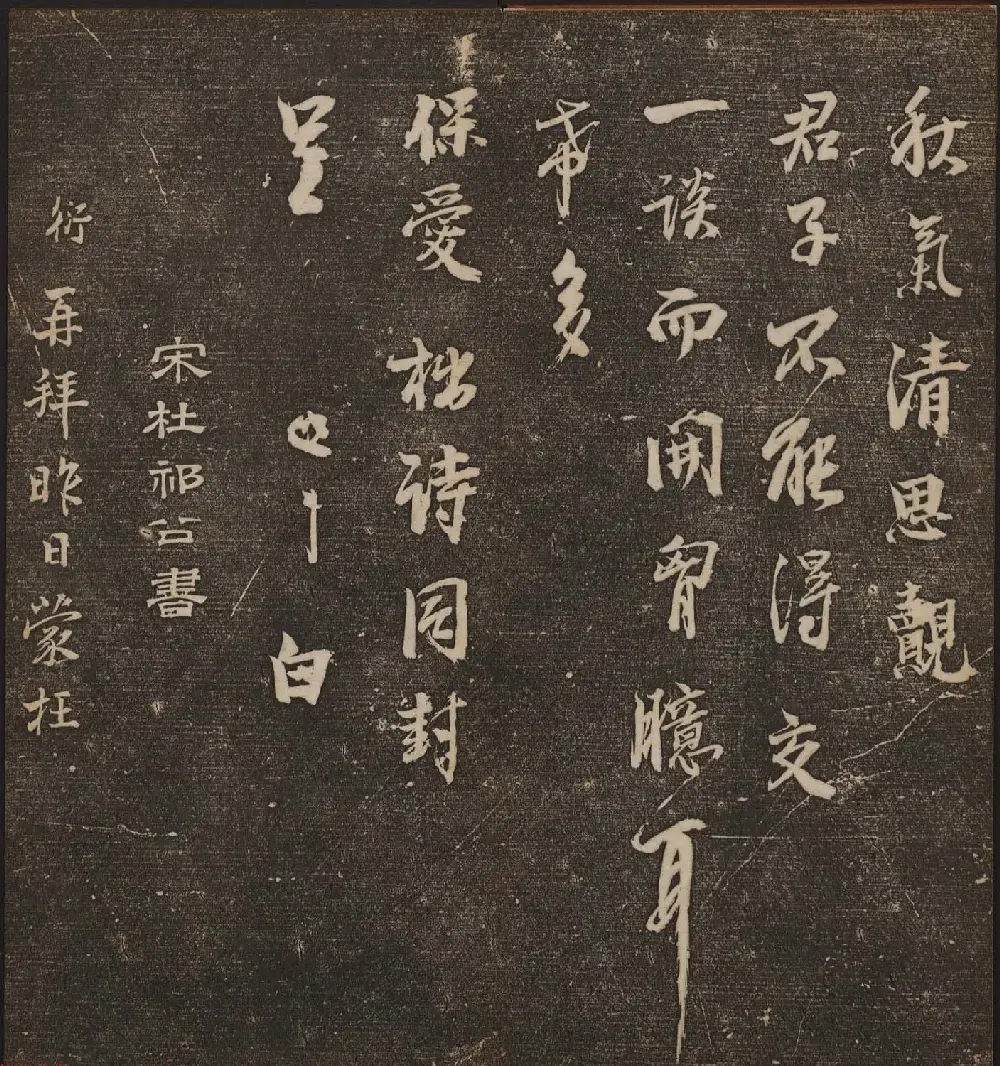 秋氣清思覿
君子不能得交
一談而開胷臆耳
希多
保愛拙詩同封
呈
白
宋杜祁公書
衍再拜昨日蒙枉